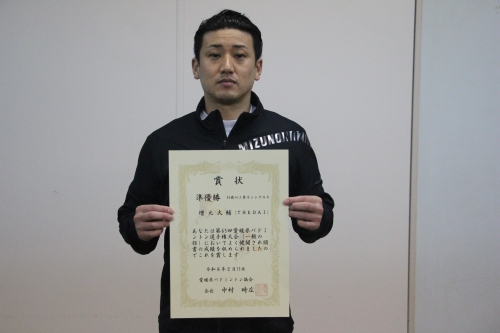 MIZUNO
賞状
準優勝
増元大輔(TREDAI)
あなたは第65回愛媛県バドミ
ントン選手権大会(一般の
部)において よく健闘され頭
書の成績を収められましたの
でこれを賞します
愛媛県バドミントン協会
会長 中村 時広